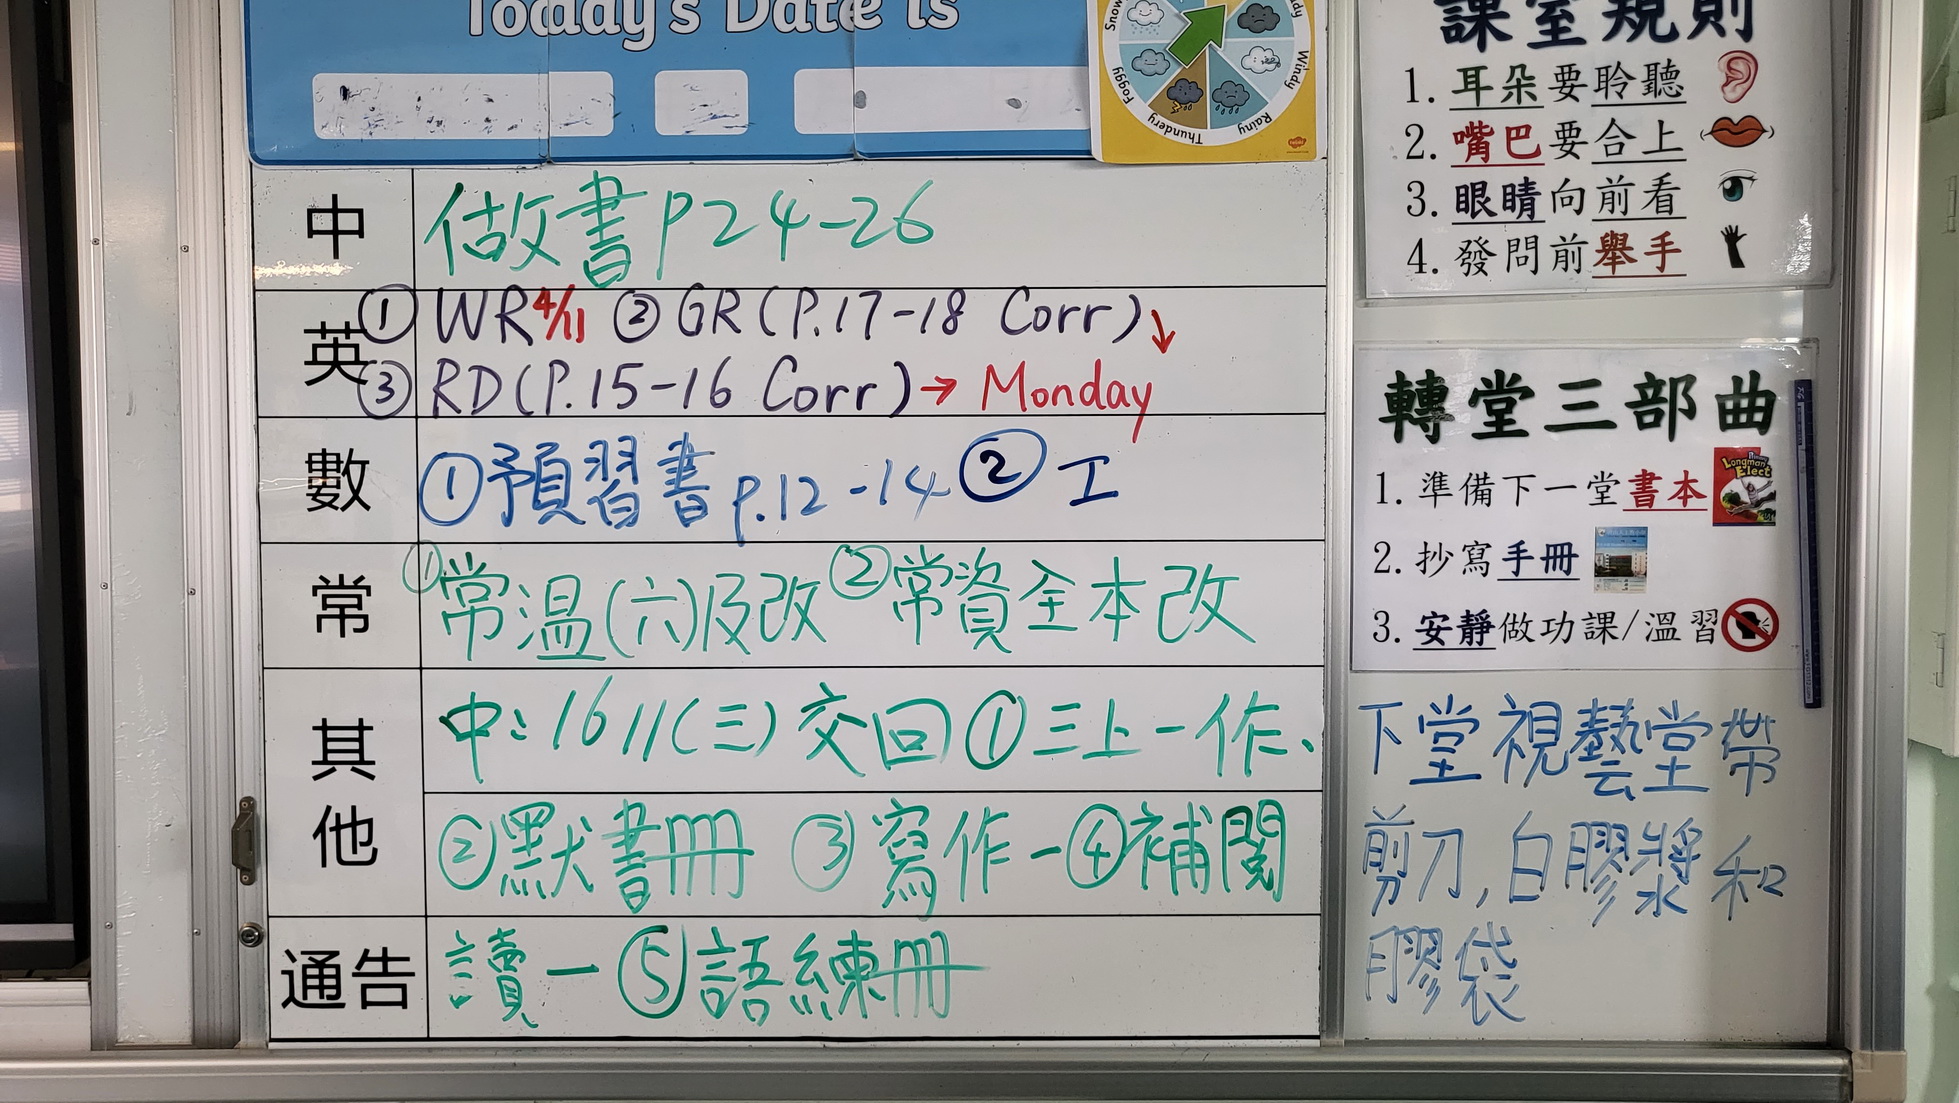 Today's Date is
Snow
Foggy
Thundery
Rainy
Windy
中
做书書P24-26
英
① WR 4/11 ② GR(P.17-18 Corr)↓
③ RD(P.15-16 Corr)→ Monday
數
①預習書p.12-14 ②工
常
①常溫(六)及改②常資全本改
其他
中:16/11(三)交回①三上一作、
②默書冊 ③寫作一④補閱
通告
讀一⑤語練冊
課室規則
1. 耳朵要聆聽
2. 嘴巴要合上
3. 眼睛向前看
4. 發問前舉手
轉堂三部曲
1. 準備下一堂書本
Longman
Elect
2. 抄寫手冊
3. 安靜做功課/溫習
下堂視藝堂帶
剪刀,白膠漿和
膠袋